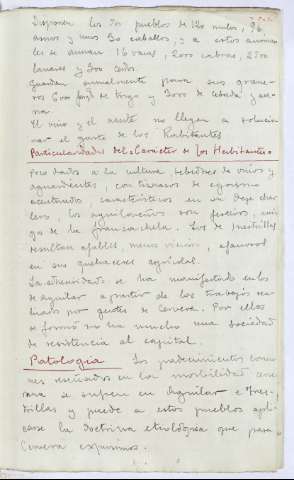 Disponen los dos pueblos de 120 mulos, 96
asnos y unos 30 caballos, y a estos anima-
les se suman 16 vacas, 2000 cabras, 2500
lanares y 300 cerdos.
Guardan anualmente para sus grane-
ros 6000 fang.s de trigo y 3000 de cebada y ave-
na.
El vino y el aceite no llegan a solucio-
nar el gasto de los habitantes
Particularidades del Caracter de los Habitantes
Poco dados a la cultura, bebedores de vinos y
aguardientes, con barruntos de egoismo
acentuado, característicos en su
los aguilareños son festeros, ami-
gos de la francachela. Los de Inestrillas
resultan afables, menos afanosos
en sus quehaceres agrícolas.
La se ha manifestado en los
de aguilar a partir de los trabajos rea-
lizados por gentes de Cervera. Por ellos
se formó no ha mucho una sociedad
de resistencia al capital.
Patología Los padecimientos comu-
nes reseñados en la morbilidad cerve-
rana se sufren en Aguilar e Ines-
trillas y puede a estos pueblos apli-
carse la doctrina etiologica que para
Cervera expusimos.